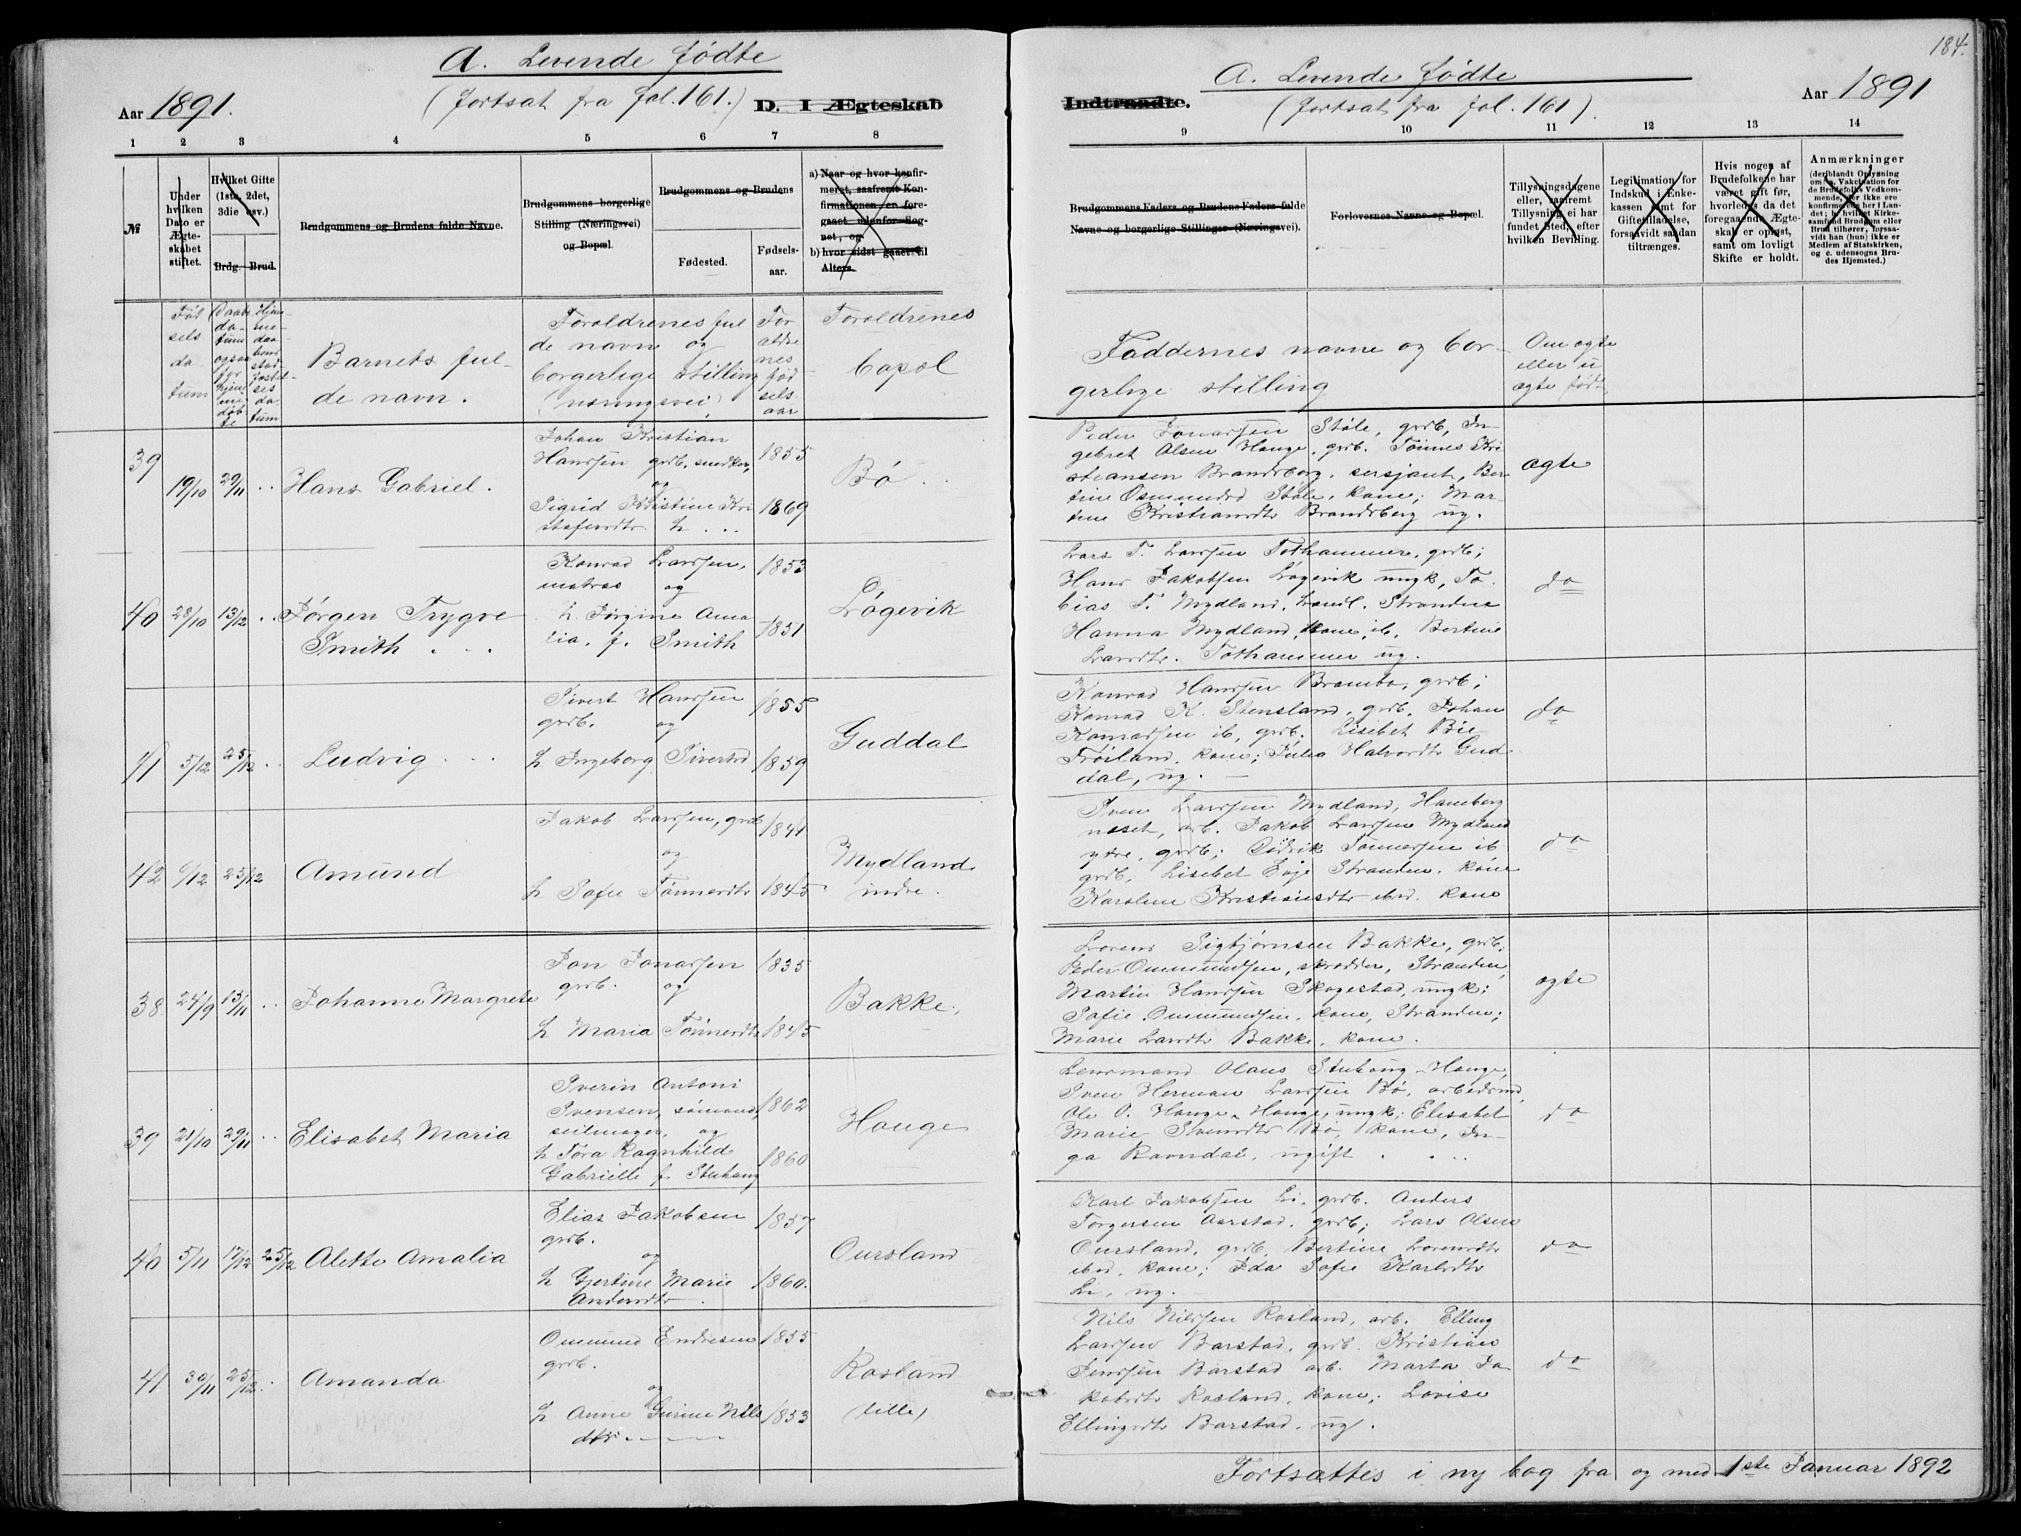 184.
A. Levende fødte
(fortsat fra fol. 161.)
Aar 1891.
D. I Ægteskab
A. Levende fødte
(fortsat fra fol. 161).
Indtraadte.
Aar 1891
1 2 3 4 5 6 7 8
9 10 11 12 13 14
№
Under hvilken Dato er Ægteskabet stiftet.
Hvilket Gifte (1ste, 2det, 3die osv.)
Brdg. Brud.
Brudgommens og Brudens fulde Navne.
Brudgommens borgerlige Stilling (Næringsvei) og Bopæl.
Brudgommens og Brudens
Fødested.
Fødselsaar.
a) Naar og hvor konfirmeret, saafremt Konfirmationen er foregaaet udenfor Sognet, og
b) hvor sidst gaaet til Alters.
Brudgommens Faders og Brudens Faders fulde Navne og borgerlige Stillinger (Næringsvei).
Forlovernes Navne og Bopæl.
Tillysningsdagene eller, saafremt Tillysning ei har fundet Sted, efter hvilken Bevilling.
Legitimation for Indskud i Enkekassen samt for Giftetilladelse, forsaavidt saadan tiltrænges.
Hvis nogen af Brudefolkene har været gift før, hvorledes da det foregaaende Ægteskab er opløst, samt om lovligt Skifte er holdt.
Anmærkninger
(deriblandt Oplysning om a. Vaksination for de Brudefolks Vedkommende, der ikke ere konfirmerede her i Landet; b. hvilket Kirkesamfund Brudgom eller Brud tilhører, forsaavidt han (hun) ikke er Medlem af Statskirken, og c. udensogns Brudes Hjemsted.)
Fødselsdatum
Barnets fulde navn.
Foræld­renes fulde navn og borgerlige stilling (næringsvei)
Forældrenes fødselsaar
Forældrenes bopæl
Faddernes navne og borgerlige stilling
Om ægte eller uægte født.
39 19/10 29/11 Hans Gabriel.
Johan Kristian Hanssen grdb, snedker, og 1855
Sigrid Kristine Kristofersdtr h. 1869
Bø
Peder Jonassen Støle, grdb, Ingebret Olsen Hauge, grdb. Tønnes Kristiansen Brandsberg, sersjant, Bertine Osmundsd Støle, kone; Martine Kristiansdtr Brandsberg ug.
ægte
40 28/10 13/12 Jørgen Trygve Smith
Konrad Larssen, matros og 1853
h. Jørgine Amalia, f. Smith 1851
Løgevik
Lars T. Larssen Tothammer, grdb; Hans Jakobsen Løgevik ungk, Tobias T. Mydland, handl. Stranden Hanna Mydland, kone, ib, Bertine Larsdtr. Tothammer ug.
do
41 5/12 25/12 Ludvig
Sivert Hanssen grdb. og 1855
h Ingeborg Sivertsd 1859
Guddal
Konrad Hanssen Brambo, grdb; Konrad K. Stensland, grdb, Johan Konradsen ib, grdb. Lisebet Bie Frøiland, kone; Julia Halvordtr Guddal, ug.
do
42 6/12 25/12 Amund
Jakob Larssen, grdb og 1841
h Sofie Tønnesdtr 1845
Mydland indre.
Sven Larssen Mydland, Haneberg neset, arb. Jakob Larssen Mydland ydre, grdb; Didrik Tønnessen ib grdb, Lisebet Eeje Stranden, kone Karolene Kristiansdtr ibid. kone
do
38 24/9 15/11 Johanne Margrete
Jon Jonassen grdb. og 1835
h Maria Tønnesdtr 1845
Bakke.
Lorens Sigbjørnsen Bakke, grdb. Peder Ommundsen, skrædder, Stranden, Martin Hanssen Skogestad, ungk; Sofie Ommundsen, kone, Stranden; Marie Larsdtr Bakke, kone.
ægte
39 21/10 29/11 Elisabet Maria
Sverin Antoni Svensen, sømand, seilmager, og 1862
h Tora Ragnhild Gabrielle f. Stuhaug 1860
Hauge
Lensmand Olaus Stuhaug - Hauge, Sven Herman Larssen Bø, arbeidsmd, Ole O. Hauge, Hauge, ungk; Elisabet Marie Svensdtr Bø, kone, Inga Ravndal, ugift.
do
40 5/11 17/12 25/12 Alette Amalia
Elias Jakobsen grdb. og 1857
h Gjertine Marie Andersdtr. 1860.
Oursland
Karl Jakobsen Li, grdb. Anders Torgersen Aarstad, grdb; Lars Olsen Oursland, grdb, Bertine Lorensdtr ibid. kone; Ida Sofie Karlsdtr Li, ug.
do
41 30/11 25/12 Amanda
Ommund Endresen grdb. og 1855
h Anne Gurine Nilsdtr 1853
Rosland (lille)
Nils Nilssen Rosland, arb. Elling Larssen Barstad, grdb. Kristian Jenssen Barstad arb. Marta Jakobsdtr Rosland, kone; Lovise Ellingsdtr Barstad, ug.
do
Fortsættes i ny bog fra og med 1ste Januar 1892